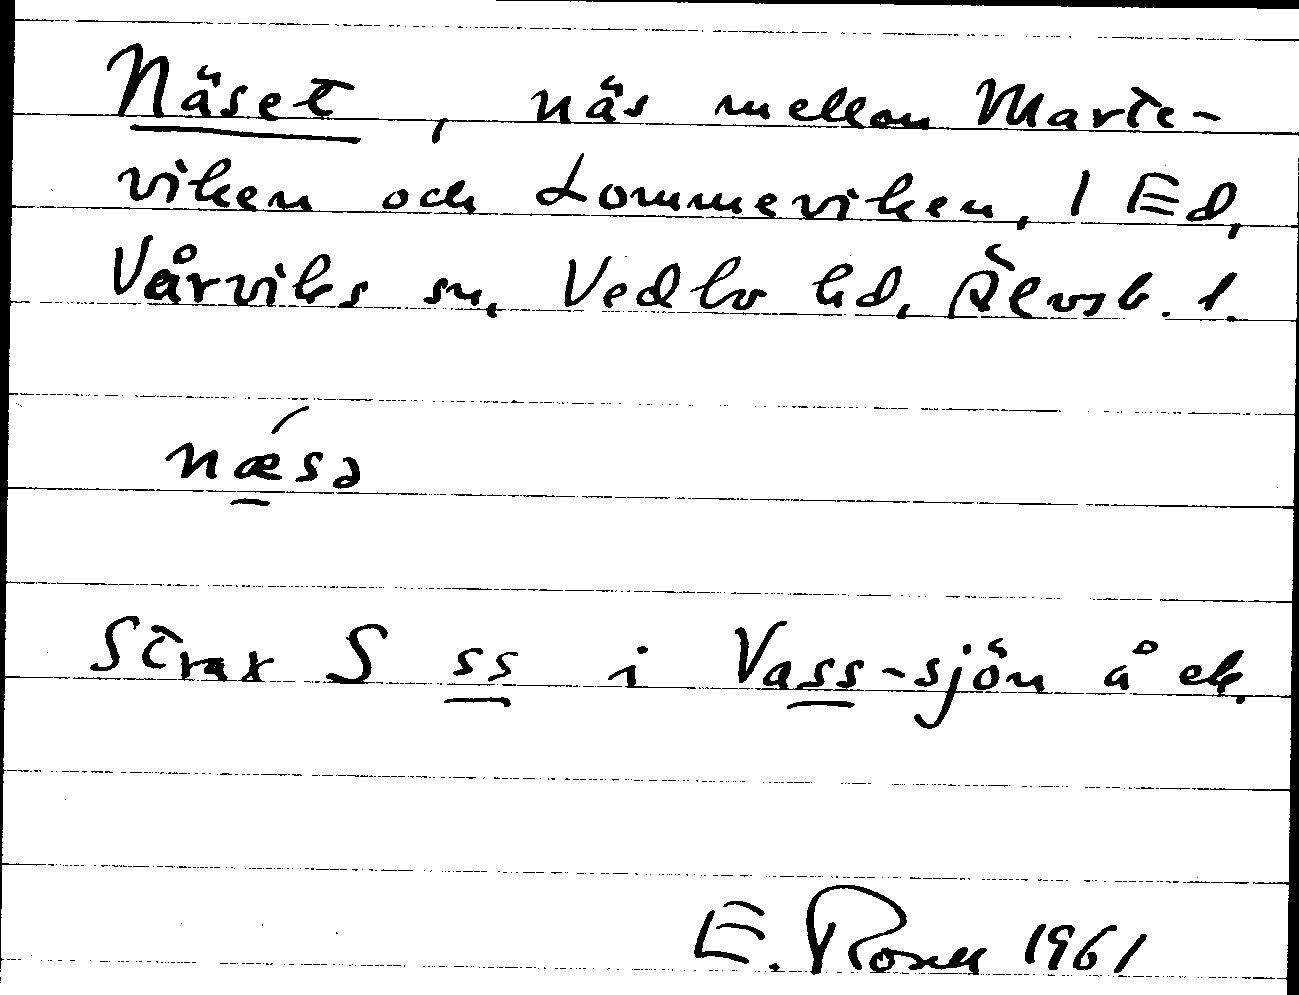 Näset, näs mellan Marte-
viken och Lommeviken, 1 Ed,
Vårviks sn, Vedbo hd, Älvsb. l.
nǽ̲sə
Strax S ss i Vass-sjön å ek.
E. Rosell 1961